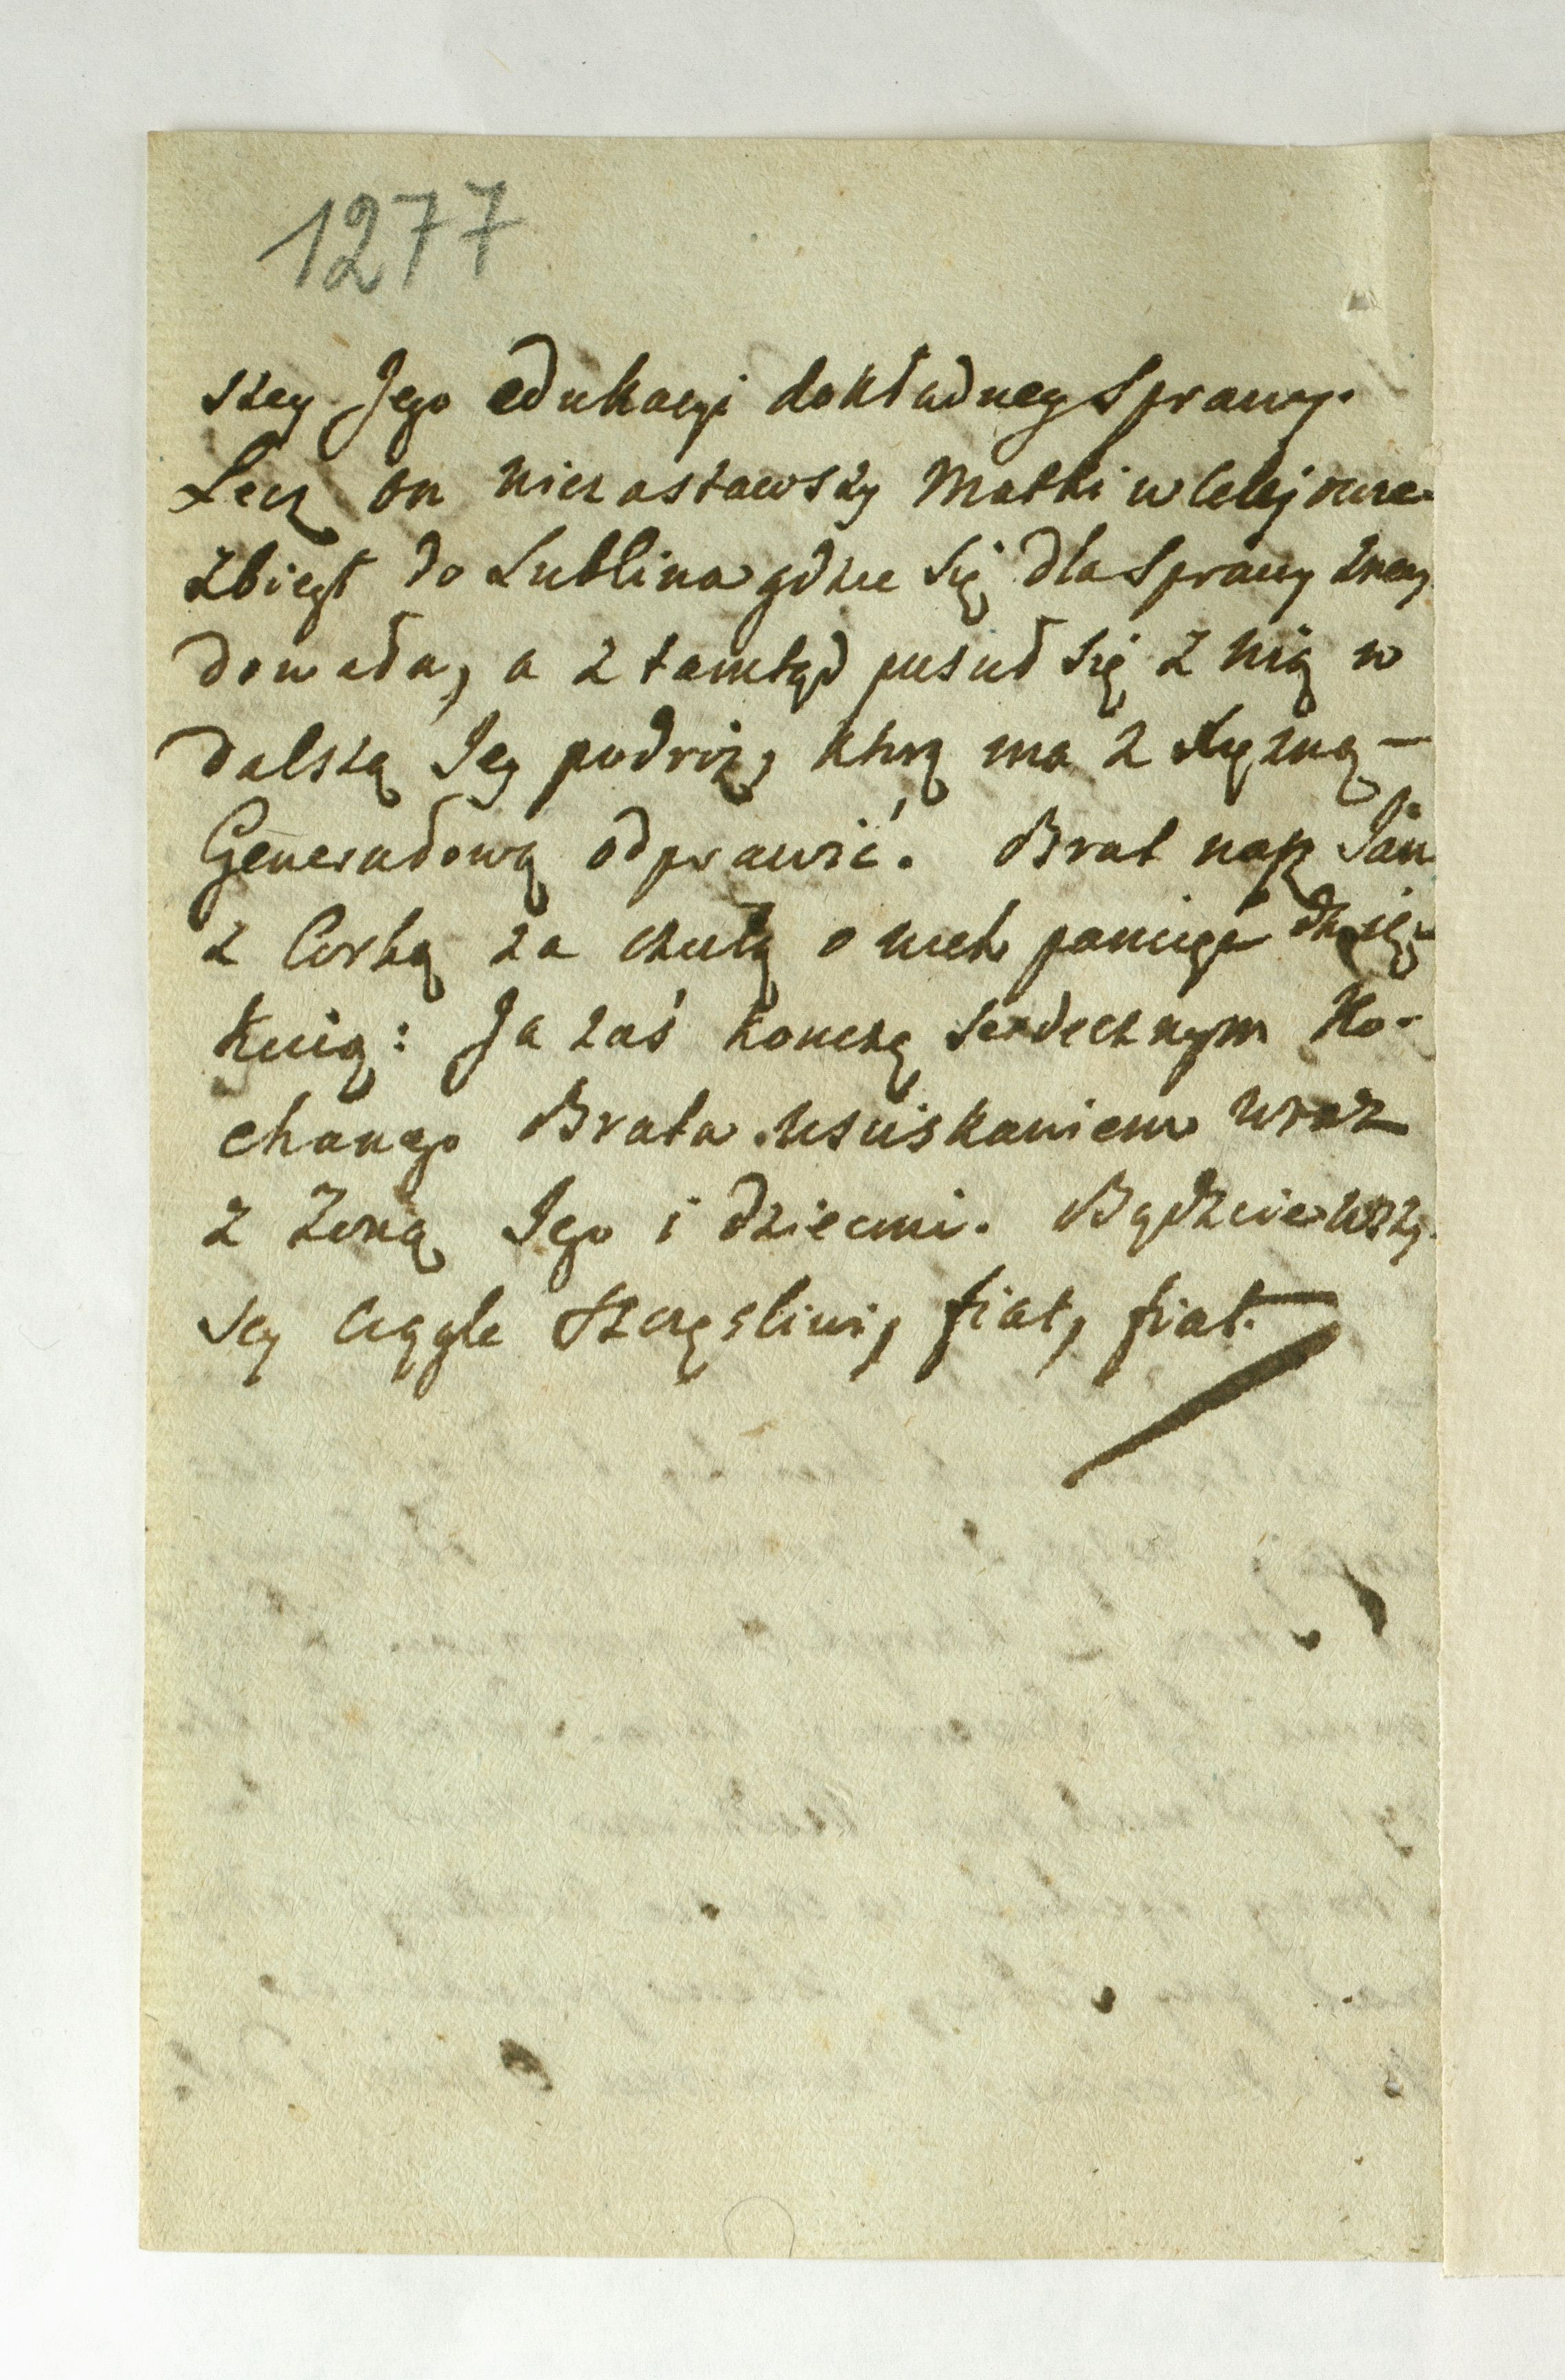 1277
szey Jego edukacyi dokładney sprawy.
Lecz on niezastawszy Matki w Celejowie
zbiegł do Lublina gdzie się dla sprawy znay
dowała, a ztamtąd puscił się z nią w
dalszą Jey podróż, którą ma z Xiężną —
Generałową odprawić. Brat nasz Jan
z Corką za czułą o nich pamięć dzię-
kuią: Ja zaś konczę serdecznym Ko-
chanego Brata usciskaniem wraz
z Zoną Jego i dziecmi. Bądzcie wszy-
scy ciągle szczęsliwi, fiat, fiat.